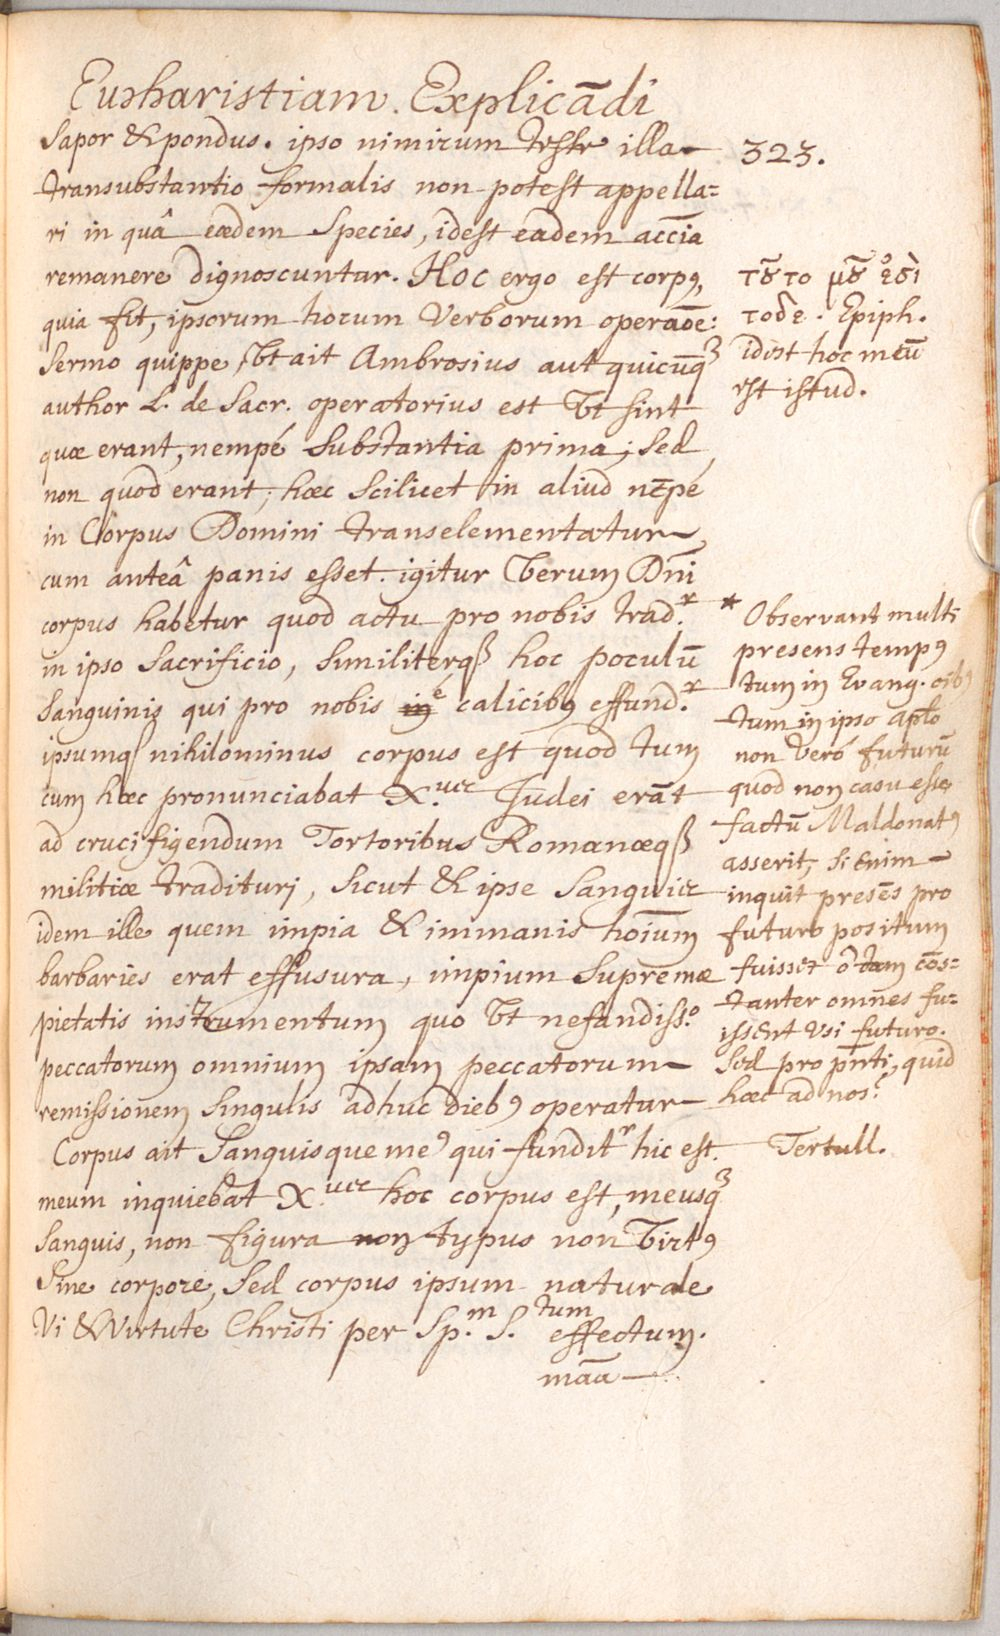 Eucharistiam. Explicãdi
Sapor & pondus. ipso nimirum teste illa
transubstantio formalis non potest appella=
ri in quâ eædem Species, idest eadem accĩa
remanere dignoscuntur. Hoc ergo est corpꝰ,
quia fit, ipsorum horum Verborum operaõe:
Sermo quippe, Vt ait Ambrosius aut quicũqꝫ
author L. de Sacr. operatorius est Vt sint
quæ erant, nempé Substantia prima; Sed
non quod erant; hæc Scilicet in aliud nẽpé
in Corpus Domini transelementatur
cum anteâ panis esset. igitur Verum Dñi
corpus habetur quod actu pro nobis trad.r *
in ipso Sacrificio, Similiterqꝫ hoc poculũ
Sanguinis qui pro nobis in é calicibꝰ effund.r
ipsumqꝫ nihilominus corpus est quod tum
cum hæc pronunciabat X.us Judei erãt
ad crucifigendum Tortoribus Romanæqꝫ
militiæ tradituri, Sicut & ipse Sanguis
idem ille quem impia & immanis hoĩum
barbaries erat effusura, impium Supremæ
pietatis instrumentum quo Vt nefandiss.o
peccatorum omnium ipsam peccatorum
remissionem Singulis adhuc diebꝰ operatur
Corpus ait Sanguisque meꝰ qui funditr hic est.
meum inquiebat X.us hoc corpus est, meusqꝫ
Sanguis, non figura non typus non Virtꝰ
Sine corpore, Sed corpus ipsum naturale
Vi & Virtute Christi per Sp.m S.tum effectum.
mãã
323.
τȣτο μȣ ἐϛὶ
τοδε. Epiph.
idest hoc meũ
est istud.
* Observant multi
presens tempꝰ
tum in Evang. oibꝰ
tum in ipso aplõ
non Veró futurũ
quod non casu esse
factũ Maldonatꝰ
asserit, Si Enim
inquit presẽs pro
futuro positum
fuisset cõs=
tanter omñes fu=
issent Vsi futuro.
Sed pro pñti, quid
hæc ad nos?
Tertull.